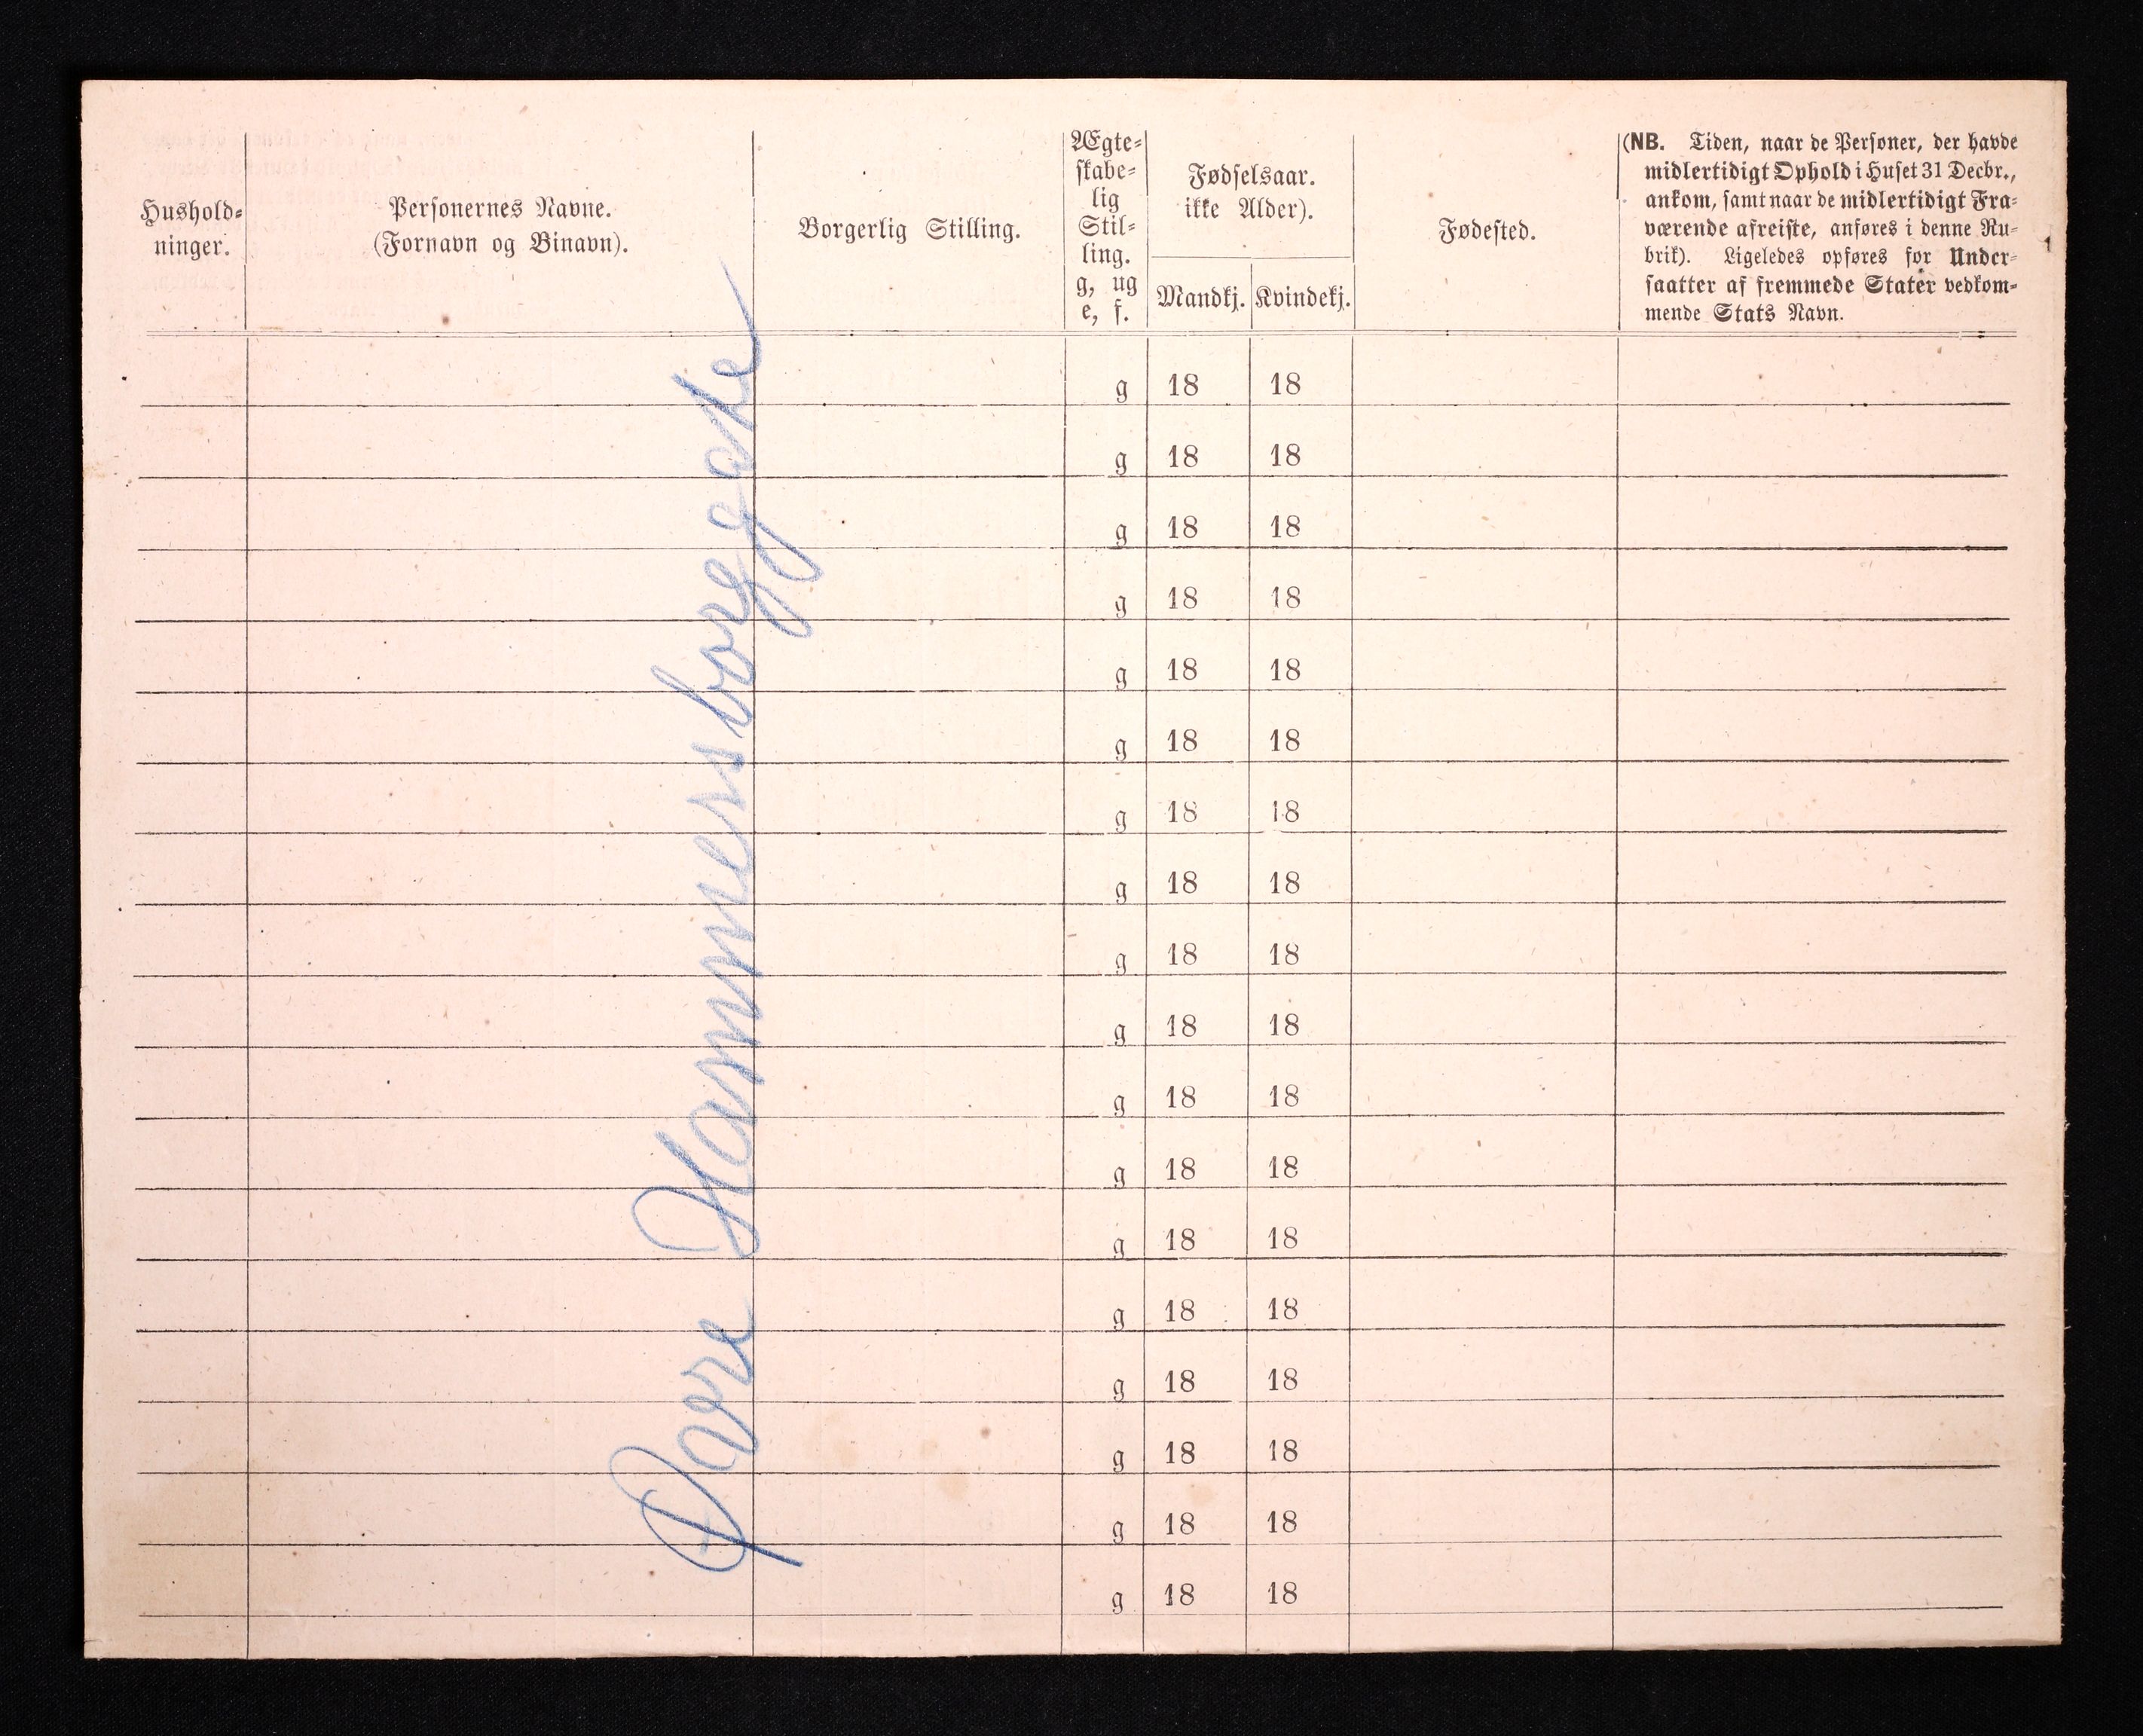 Hushold-
ninger.
Personernes Navne.
(Fornavn og Binavn).
Borgerlig Stilling.
Ægte-
skabe-
lig
Stil-
ling.
g, ug
e, f.
Fødselsaar.
ikke Alder).
Mandkj. Kvindekj.
Fødested.
(NB. Tiden, naar de Personer, der havde
midlertidigt Ophold i Huset 31 Decbr.,
ankom, samt naar de midlertidigt Fra-
værende afreiste, anføres i denne Ru-
brik). Ligeledes opføres for Under-
saatter af fremmede Stater vedkom-
mende Stats Navn.
g 18 18
g 18 18
g 18 18
g 18 18
g 18 18
g 18 18
g 18 18
g 18 18
g 18 18
g 18 18
g 18 18
g 18 18
g 18 18
g 18 18
g 18 18
g 18 18
g 18 18
g 18 18
Øvre Hammersborggate